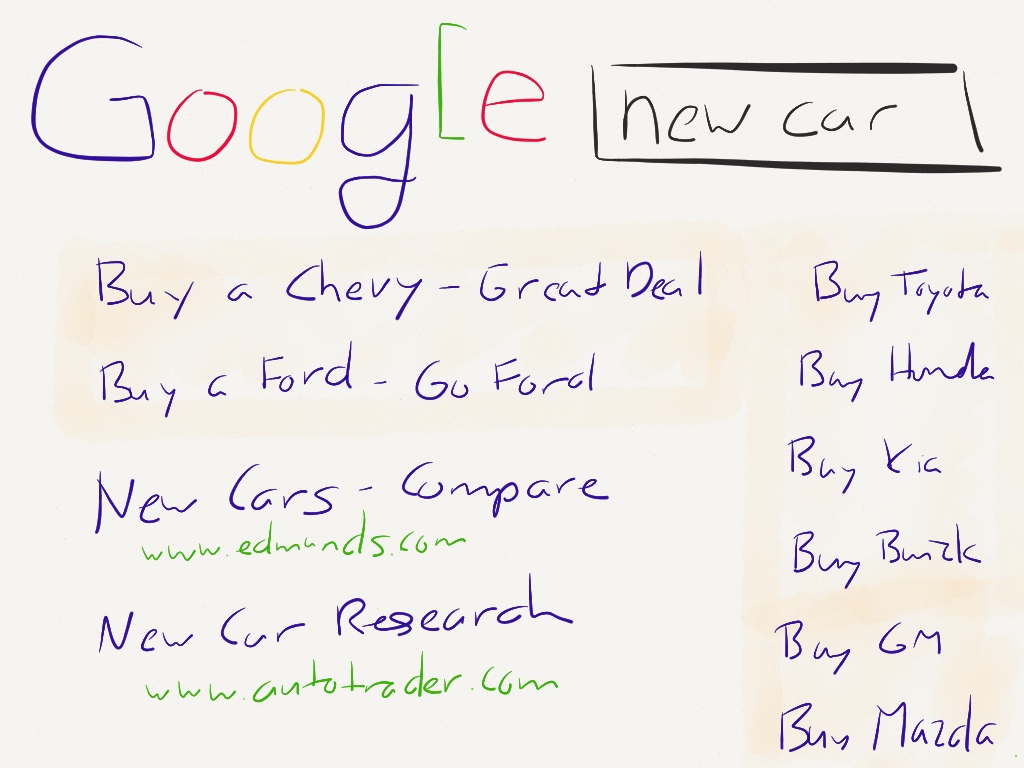 Google new car
Buy a Chevy - Great Deal
Buy a Ford - Go Ford
New Cars - Compare
www.edmunds.com
New Car Research
www.autotrader.com
Buy Toyota
Buy Honda
Buy Kia
Buy Buick
Buy GM
Buy Mazda